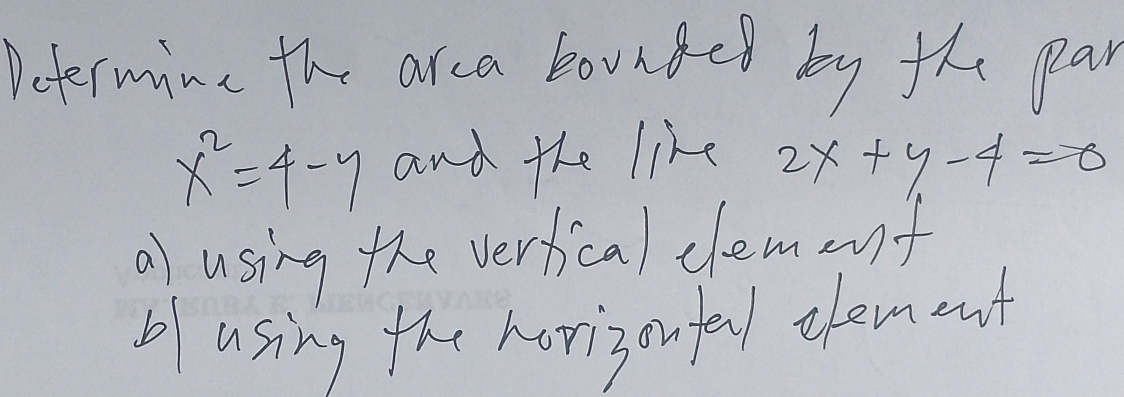 Determine the area bounded by the par
x² = 4 - y and the line 2x + y - 4 = 0
a) using the vertical element
b) using the horizontal element